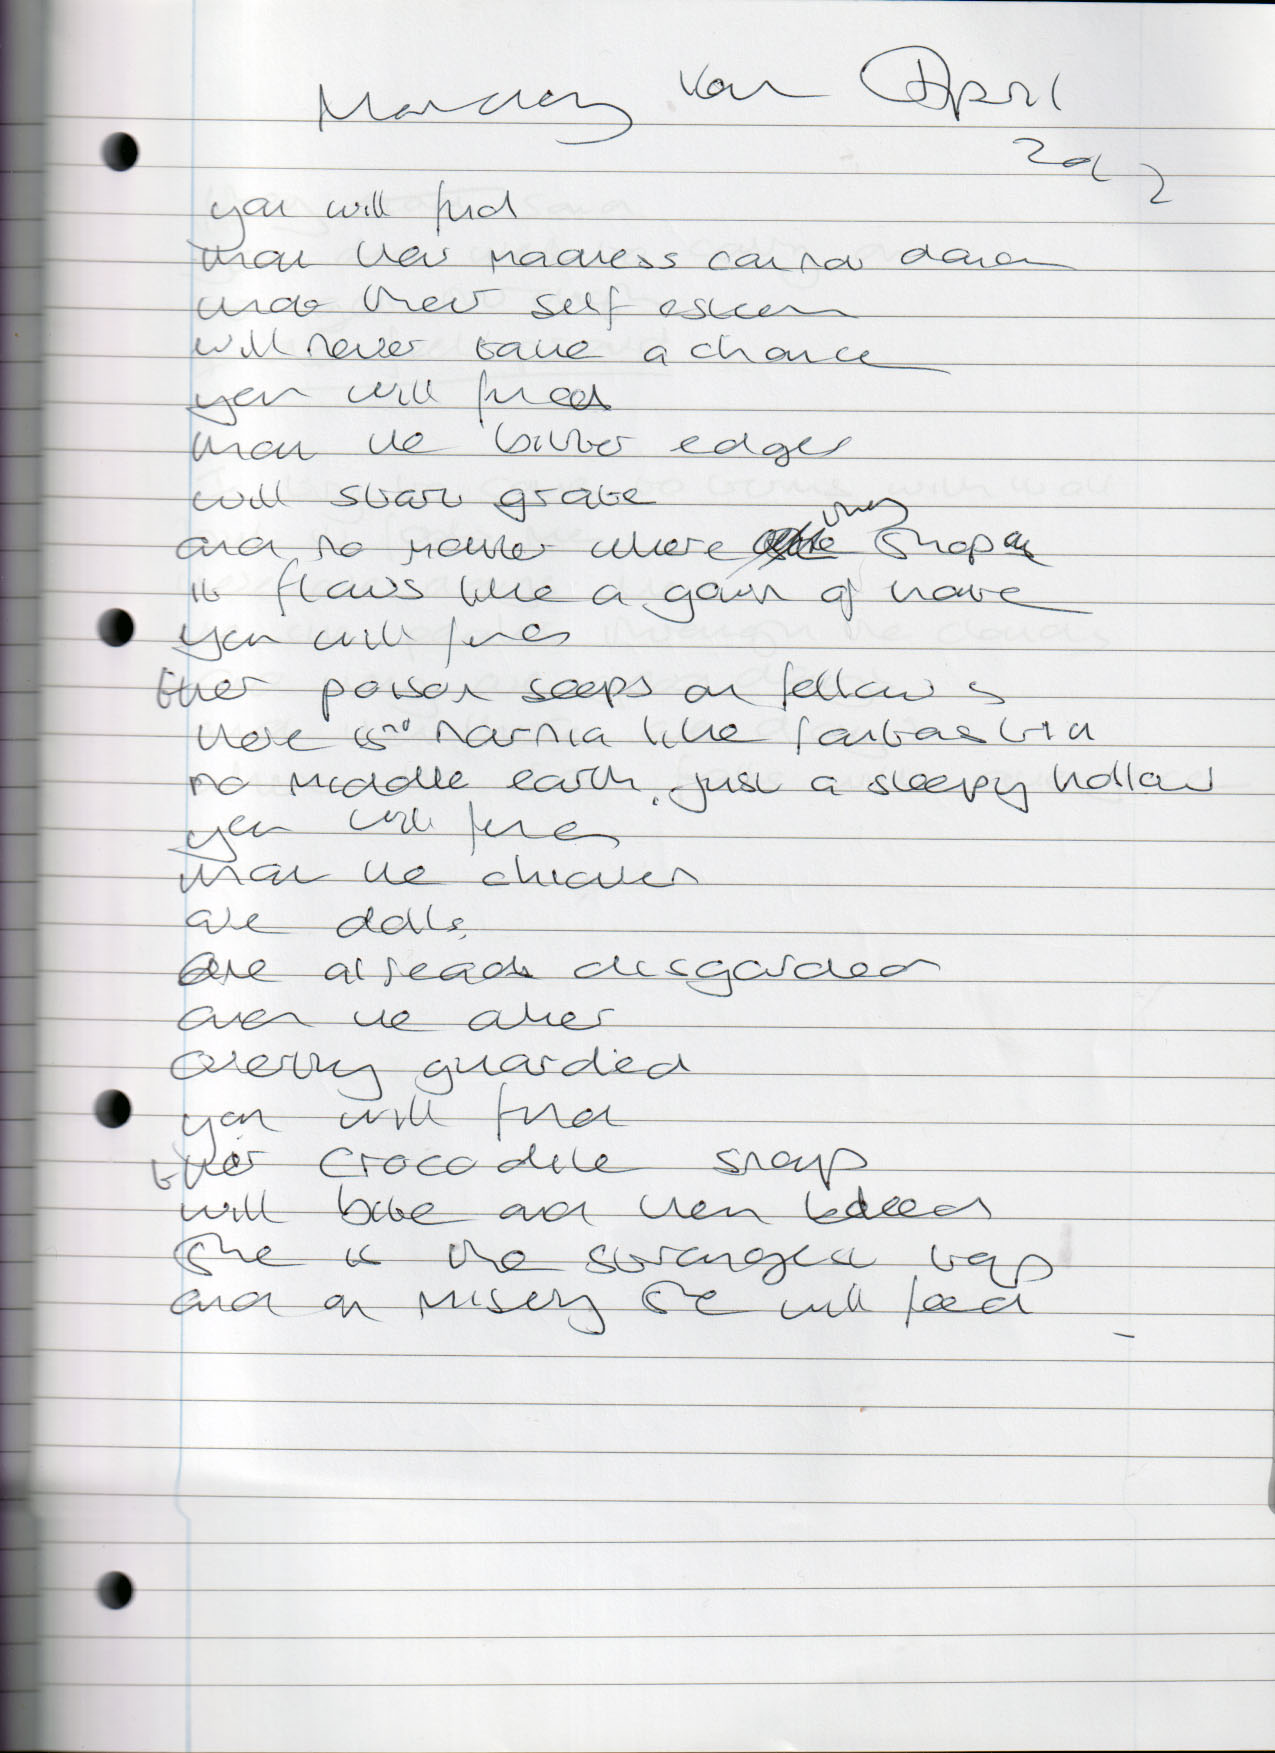 Monday
April
2012
you will find
that their madness cannot dance
their self esteem
will never take a chance
you will find
that the bitter edges
will start grate
and no matter where they shop
it flows like a gown of hate
you will find
their poison seeps on fellows
there is no narnia like fantastia
no middle earth, just a sleepy hollow
you will find
that the children
are dolls
are already disgarded
and the other
overly guarded
you will find
their crocodile snap
will bite and then bleed
She is the strangest trap
and on misery She will feed